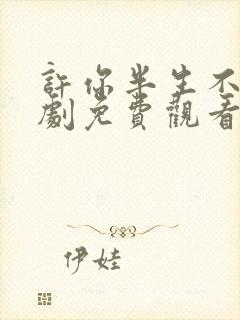 許你半生不
劇免費觀看
伊娃